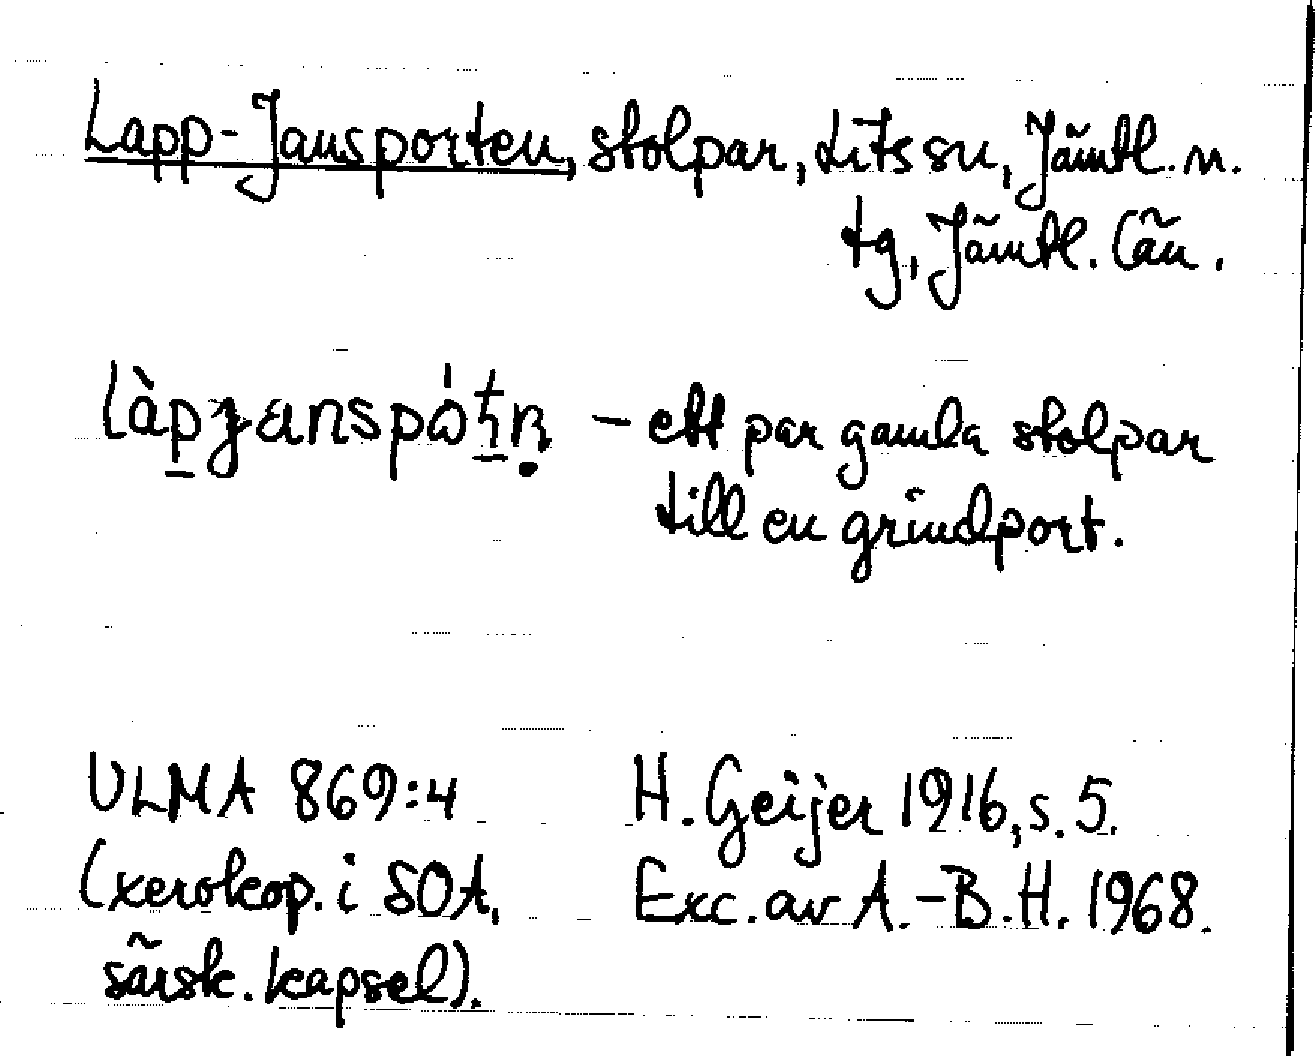 Lapp-Jansporten, stolpar, Lits sn, Jämtl. n.
tg, Jämtl. län.
– ett par gamla stolpar
till en grindport.
ULMA 869:4
(xerokop. i SOA,
särsk. kapsel).
H. Geijer 1916, s. 5.
Exc. av A.-B. H. 1968.